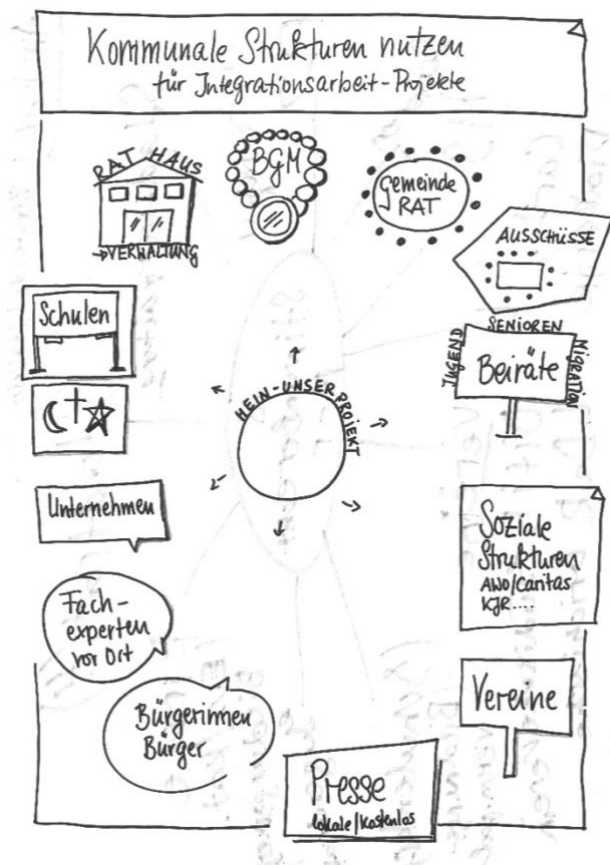 Kommunale Strukturen nutzen
für Integrationsarbeit-Projekte
RATHAUS
→VERWALTUNG
BGM
Gemeinde
RAT
AUSSCHÜSSE
Schulen
JUGEND
SENIOREN
MIGRATION
Beiräte
MEIN-UNSER PROJEKT
Unternehmen
Soziale
Strukturen
AWO/Caritas
KJR....
Fach-
experten
vor Ort
Vereine
Bürgerinnen
Bürger
Presse
lokale/kostenlos